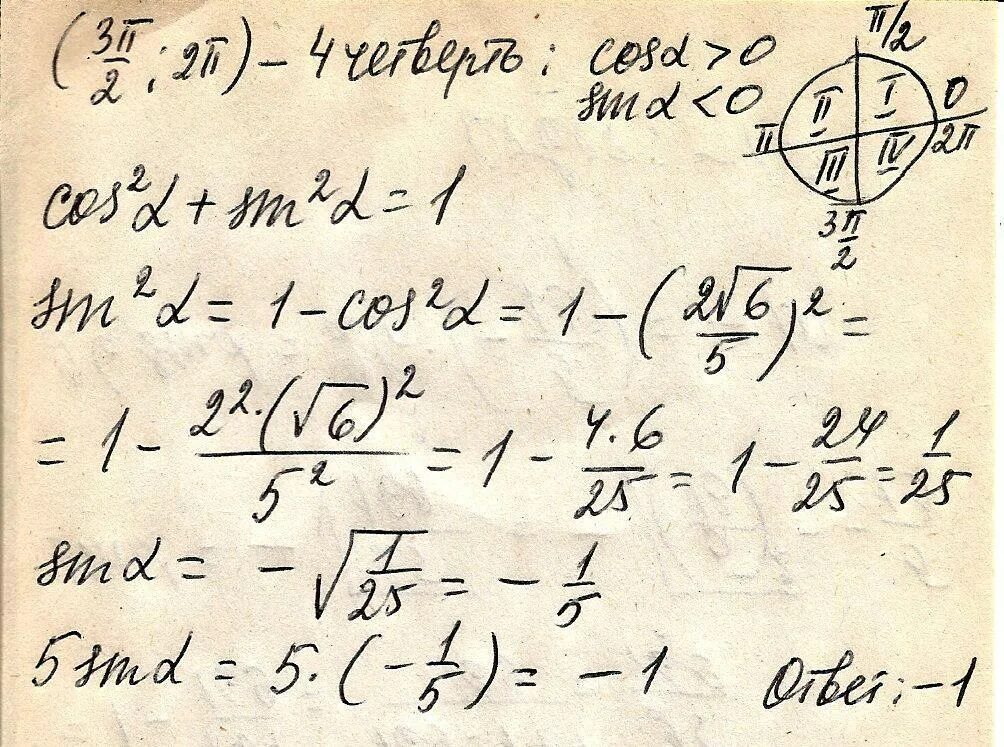 (3π/2 ; 2π) – 4 четверть : cosα > 0
sinα < 0
π/2
II I 0
π III IV 2π
3π/2
cos²α + sin²α = 1
sin²α = 1 – cos²α = 1 – (2√6/5)² =
= 1 – 2²·(√6)²/5² = 1 – 4·6/25 = 1 – 24/25 = 1/25
sinα = –√(1/25) = – 1/5
5 sinα = 5·(–1/5) = – 1 Ответ : –1